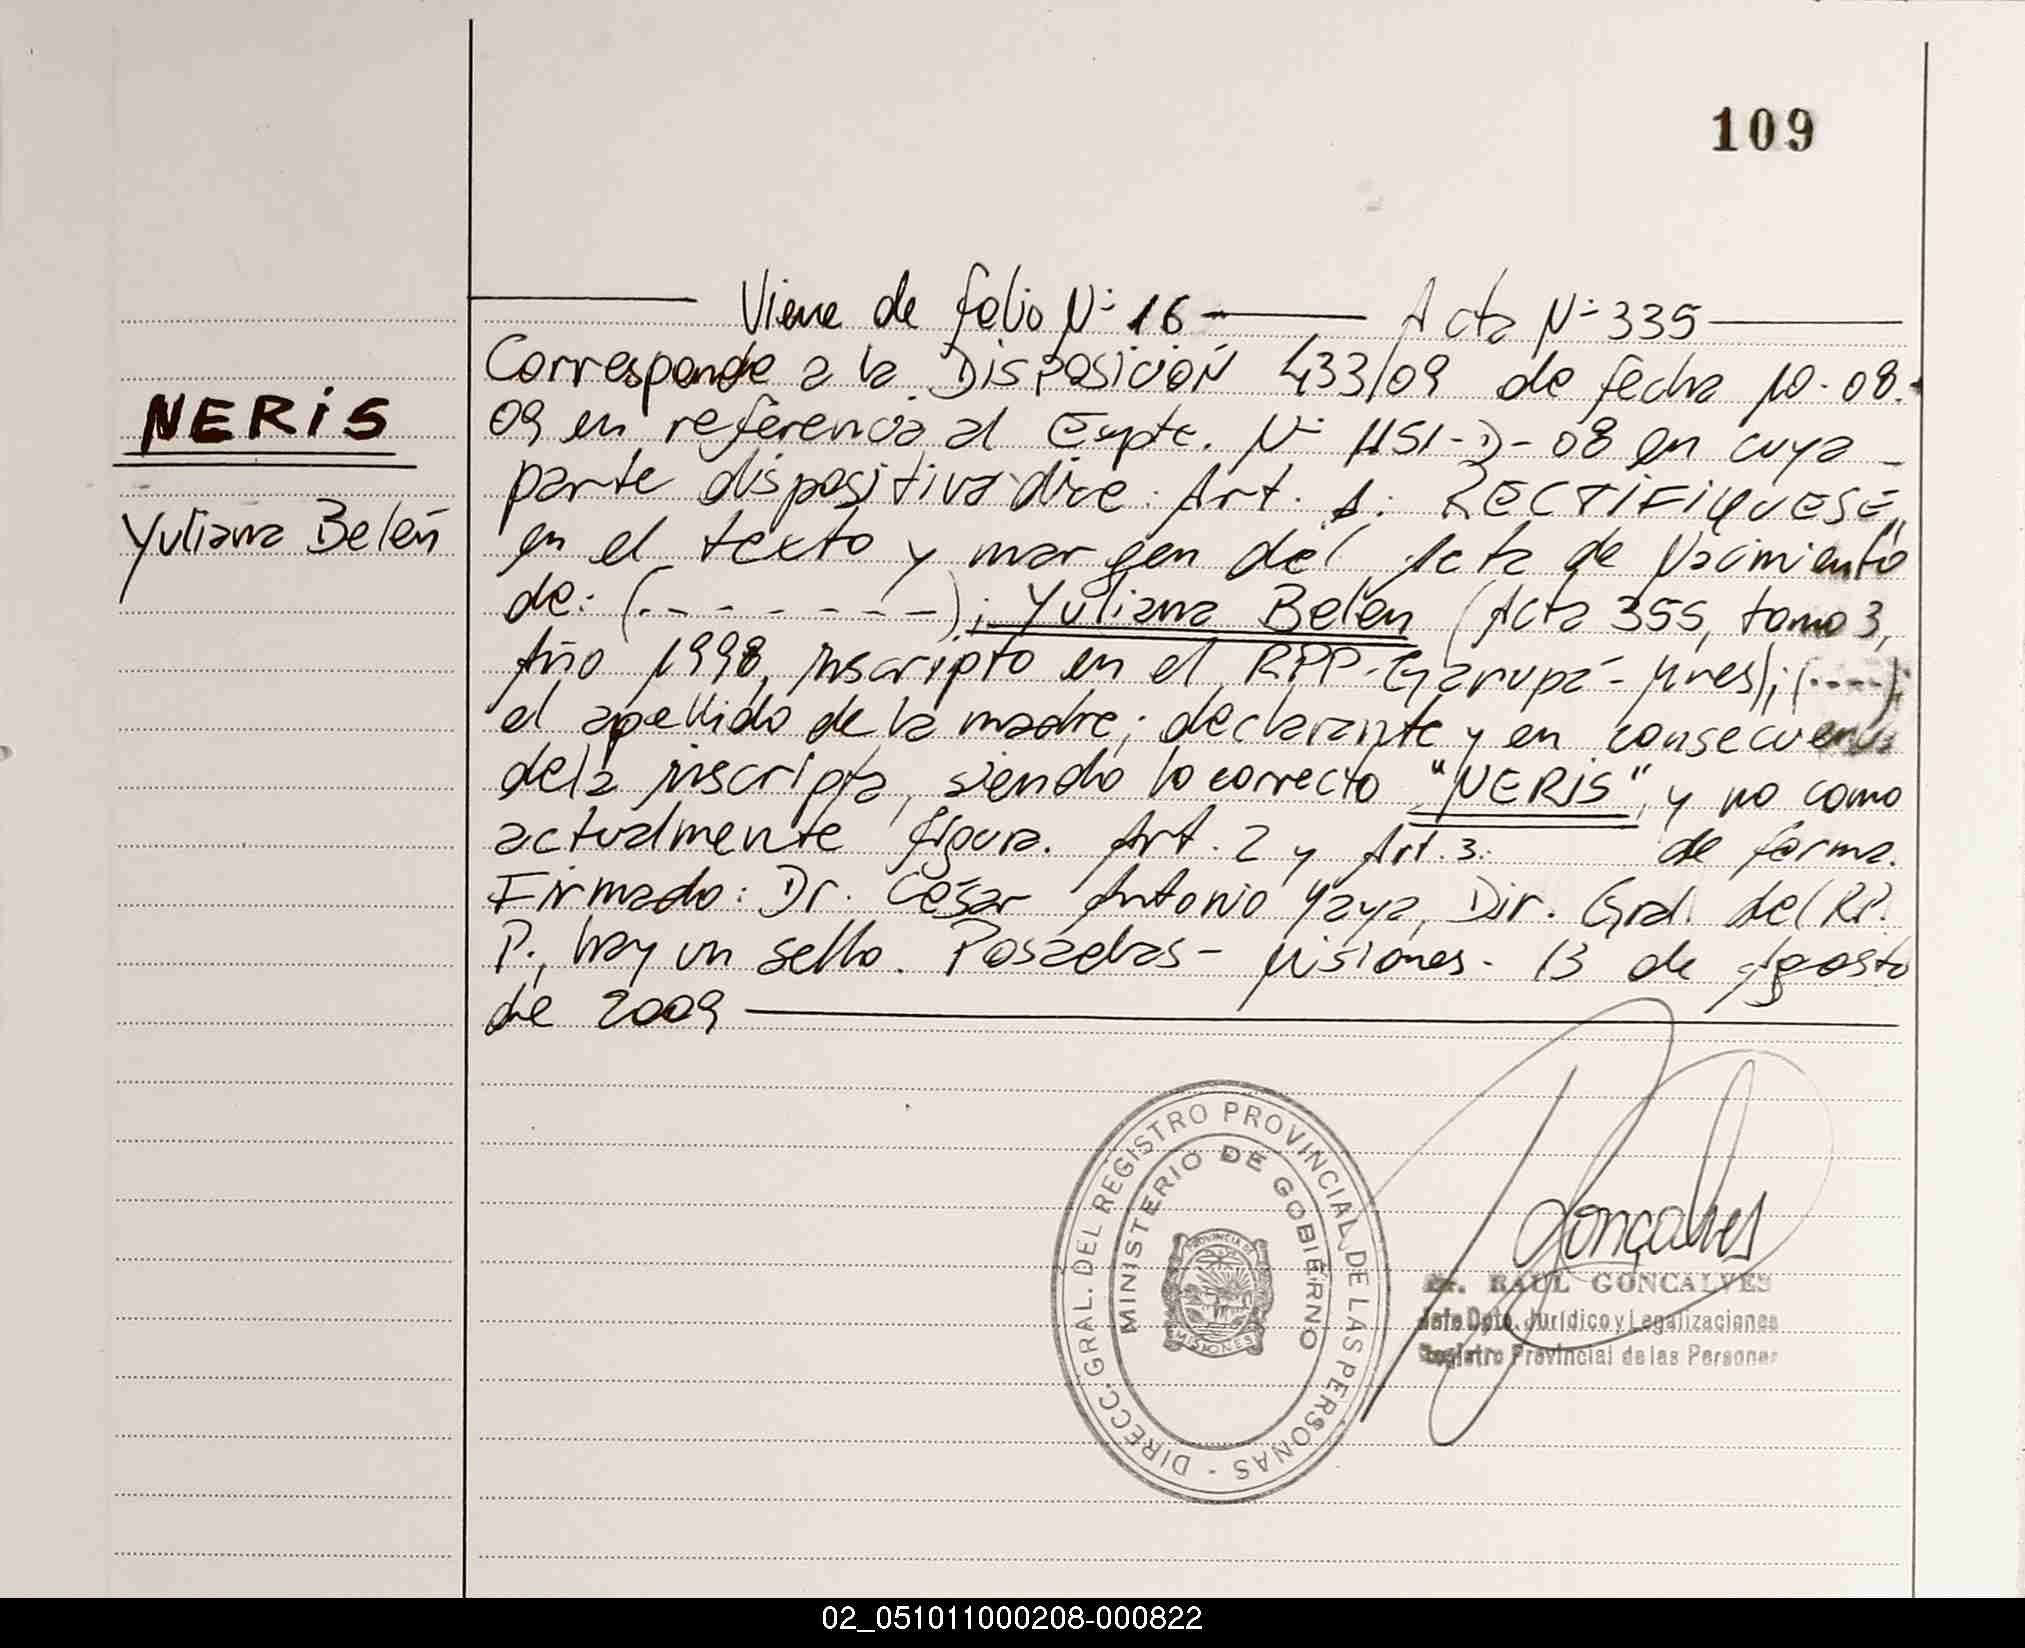 109
Viene de folio Nº 16 — Acta Nº 335
Corresponde a la Disposición 433/09 de fecha 10-08-
NERIS
09 en referencia al Expte. Nº 1151-D-08 en cuya
parte dispositiva dice: Art. 1. RECTIFIQUESE
Yuliana Belén
en el texto y margen del Acta de Nacimiento
de: (. - - - - - - -); Yuliana Belen (Acta 355, tomo 3,
Año 1998, inscripto en el RPP-Garupá-Mnes); (----);
el apellido de la madre; declarante y en consecuencia
de la inscripta, siendo lo correcto "NERIS", y no como
actualmente figura. Art. 2 y Art. 3. de forma.
Firmado: Dr. César Antonio Yaya, Dir. Gral. del R.P.
P., hay un sello. Posadas - Misiones - 13 de Agosto
de 2009
DIRECC. GRAL. DEL REGISTRO PROVINCIAL DE LAS PERSONAS -
MINISTERIO DE GOBIERNO
PROVINCIA DE
MISIONES
Gonçalves
Dr. RAUL GONCALVES
Jefe Dpto. Jurídico y Legalizaciones
Registro Provincial de las Personas
02_051011000208-000822